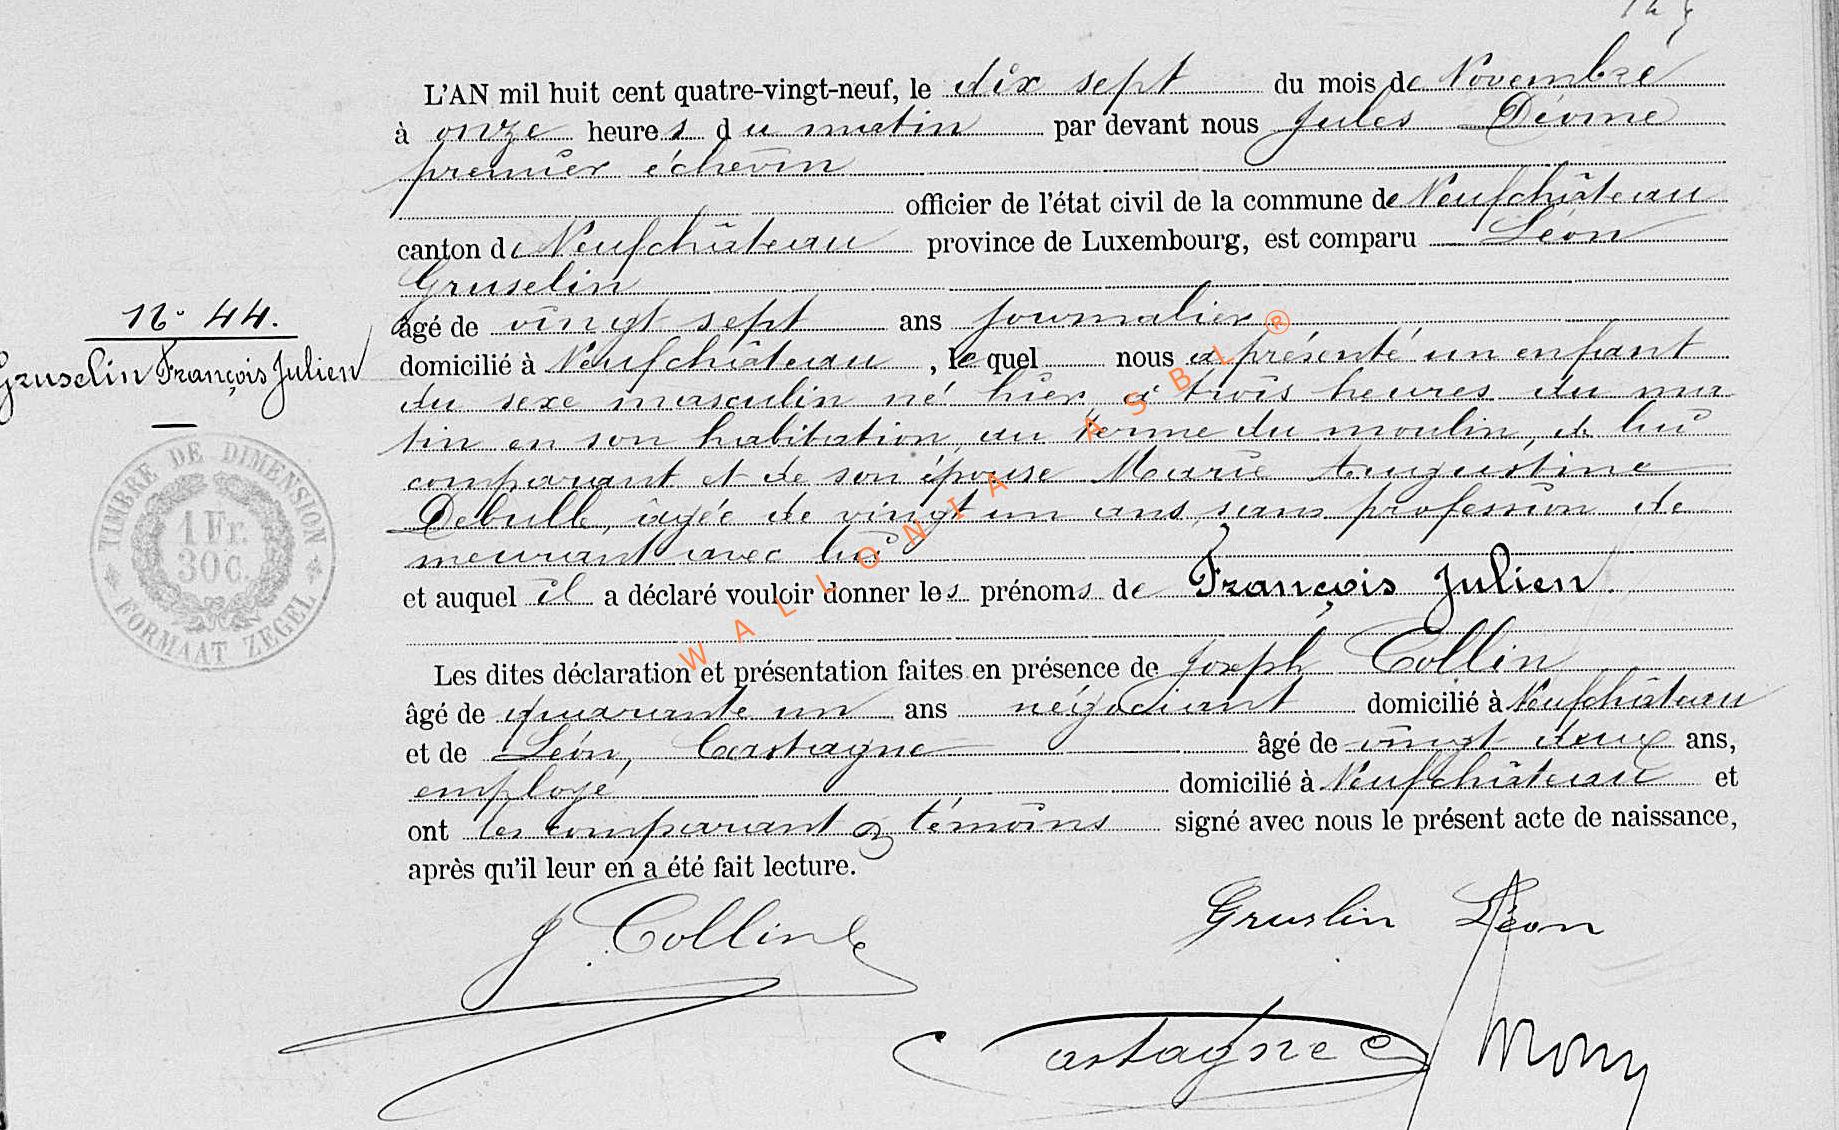 L'AN mil huit cent quatre-vingt-neuf, le dix sept du mois de Novembre
à onze heures du matin par devant nous Jules Déome
premier échevin
officier de l'état civil de la commune de Neufchâteau
canton de Neufchâteau province de Luxembourg, est comparu Léon
Gruselin
âgé de vingt sept ans journalier
domicilié à Neufchâteau, lequel nous a présenté un enfant
du sexe masculin né hier, à trois heures du ma
tin en son habitation, au terme du moulin, de lui
comparant et de son épouse Marie Augustine
Debulle, âgée de vingt un ans, sans profession de
meurant avec lui
et auquel il a déclaré vouloir donner les prénoms de François Julien.
Les dites déclaration et présentation faites en présence de Joseph Collin
âgé de quarante un ans négociant domicilié à Neufchâteau
et de Léon, Castagne âgé de vingt deux ans,
employé domicilié à Neufchâteau et
ont les comparant & témoins signé avec nous le présent acte de naissance,
après qu'il leur en a été fait lecture.
J. Collin
Gruslin Léon
Castagne
N° 44.
Gruselin François Julien
TIMBRE DE DIMENSION
1 Fr.
30 C.
FORMAAT ZEGEL
WALLONIA ASBL ®